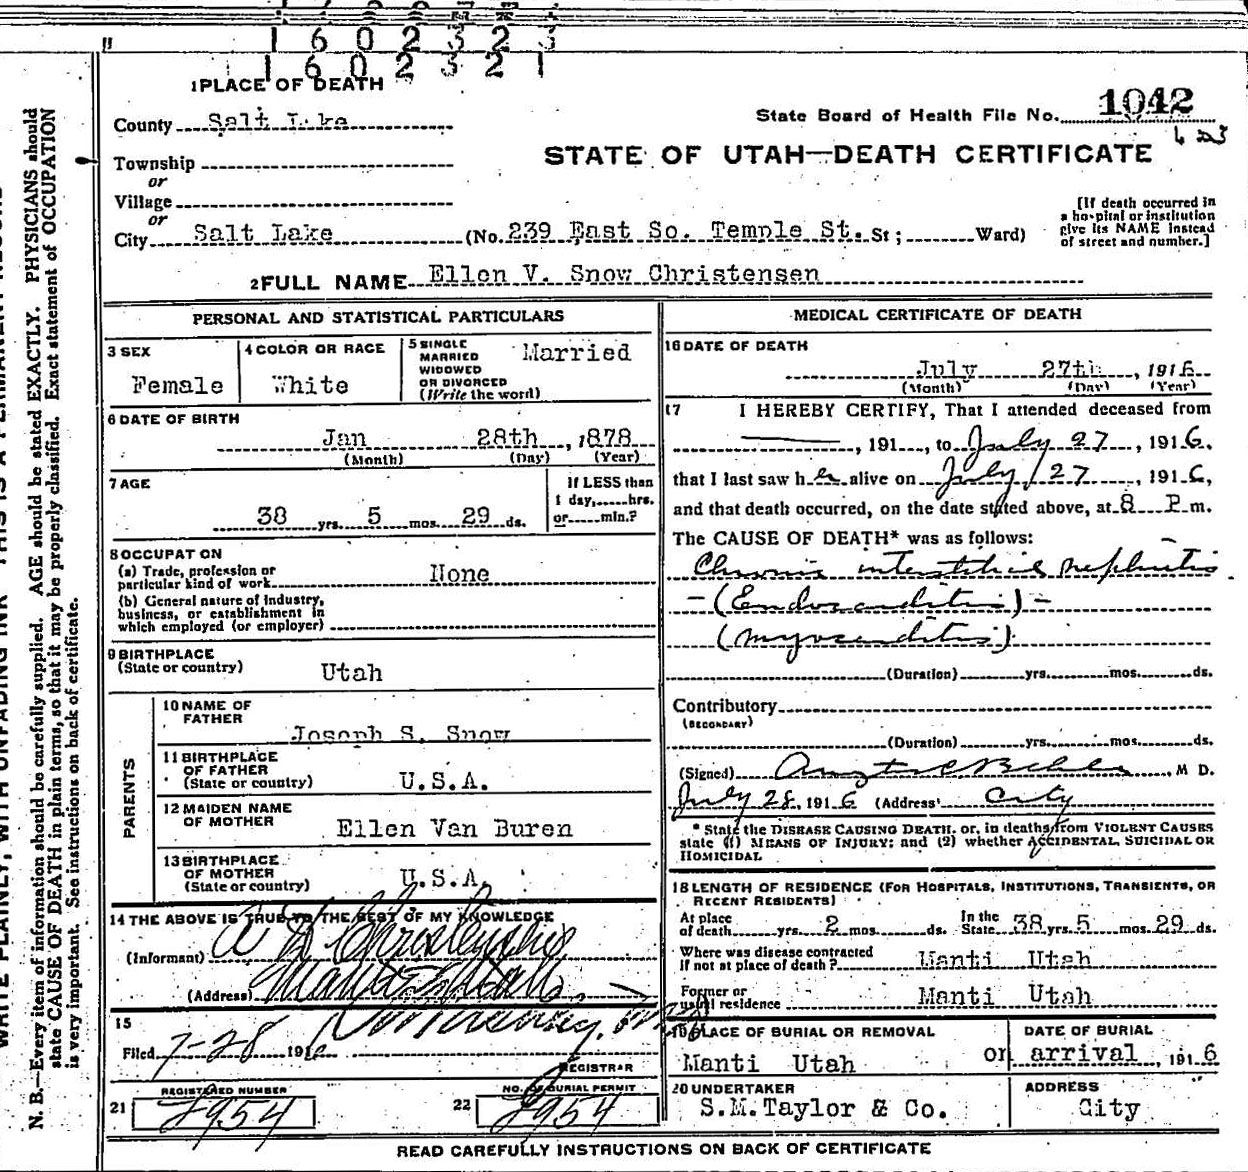 160232
160232
1 PLACE OF DEATH
State Board of Health File No. 1042
County Salt Lake
STATE OF UTAH—DEATH CERTIFICATE
Township
or
Village
or
City Salt Lake (No. 239 East So. Temple St. St; Ward)
[If death occurred in
a hospital or institution
give its NAME instead
of street and number.]
2 FULL NAME Ellen V. Snow Christensen
PERSONAL AND STATISTICAL PARTICULARS
3 SEX
Female
4 COLOR OR RACE
White
5 SINGLE
MARRIED
WIDOWED
OR DIVORCED
(Write the word)
Married
6 DATE OF BIRTH
Jan 28th, 1878
(Month) (Day) (Year)
7 AGE
38 yrs. 5 mos. 29 ds.
If LESS than
1 day,.....hrs.
or.....min.?
8 OCCUPATION
(a) Trade, profession or
particular kind of work None
(b) General nature of industry,
business, or establishment in
which employed (or employer)
9 BIRTHPLACE
(State or country) Utah
PARENTS
10 NAME OF
FATHER
Joseph S. Snow
11 BIRTHPLACE
OF FATHER
(State or country) U.S.A.
12 MAIDEN NAME
OF MOTHER
Ellen Van Buren
13 BIRTHPLACE
OF MOTHER
(State or country) U.S.A.
14 THE ABOVE IS TRUE TO THE BEST OF MY KNOWLEDGE
(Informant)
(Address) Manti Utah
15
Filed 7-28 191
REGISTRAR
REGISTERED NUMBER
21 2954
NO. OF BURIAL PERMIT
22 2954
MEDICAL CERTIFICATE OF DEATH
16 DATE OF DEATH
July 27th, 1916
(Month) (Day) (Year)
17 I HEREBY CERTIFY, That I attended deceased from
, 191, to July 27, 1916,
that I last saw her alive on July 27, 1916,
and that death occurred, on the date stated above, at 8 P.m.
The CAUSE OF DEATH* was as follows:
Chronic interstitial nephritis
-(Endocarditis)-
(myocarditis)
(Duration) yrs. mos. ds.
Contributory
(SECONDARY)
(Duration) yrs. mos. ds.
(Signed) M D.
July 28, 1916 (Address) City
* State the DISEASE CAUSING DEATH, or, in deaths from VIOLENT CAUSES
state (1) MEANS OF INJURY; and (2) whether ACCIDENTAL, SUICIDAL OR
HOMICIDAL
18 LENGTH OF RESIDENCE (FOR HOSPITALS, INSTITUTIONS, TRANSIENTS, OR
RECENT RESIDENTS)
At place
of death yrs. 2 mos. ds.
In the
State 38 yrs. 5 mos. 29 ds.
Where was disease contracted
if not at place of death? Manti Utah
Former or
usual residence Manti Utah
19 PLACE OF BURIAL OR REMOVAL
Manti Utah
DATE OF BURIAL
or arrival, 1916
20 UNDERTAKER
S.M.Taylor & Co.
ADDRESS
City
READ CAREFULLY INSTRUCTIONS ON BACK OF CERTIFICATE
N. B.—Every item of information should be carefully supplied. AGE should be stated EXACTLY. PHYSICIANS should
state CAUSE OF DEATH in plain terms, so that it may be properly classified. Exact statement of OCCUPATION
is very important. See instructions on back of certificate.